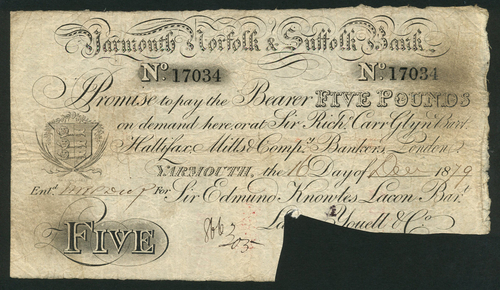 Yarmouth Norfolk & Suffolk Bank
No 17034 No 17034
I Promise to pay the Bearer FIVE POUNDS
on demand here, or at Sir Richd. Carr Glyn Bart.
Hallifax, Mills & Compy. Bankers London
YARMOUTH, the 16 Day of Decr 1879
Entd. For Sir Edmund Knowles Lacon Bart.
Youell & Co
FIVE